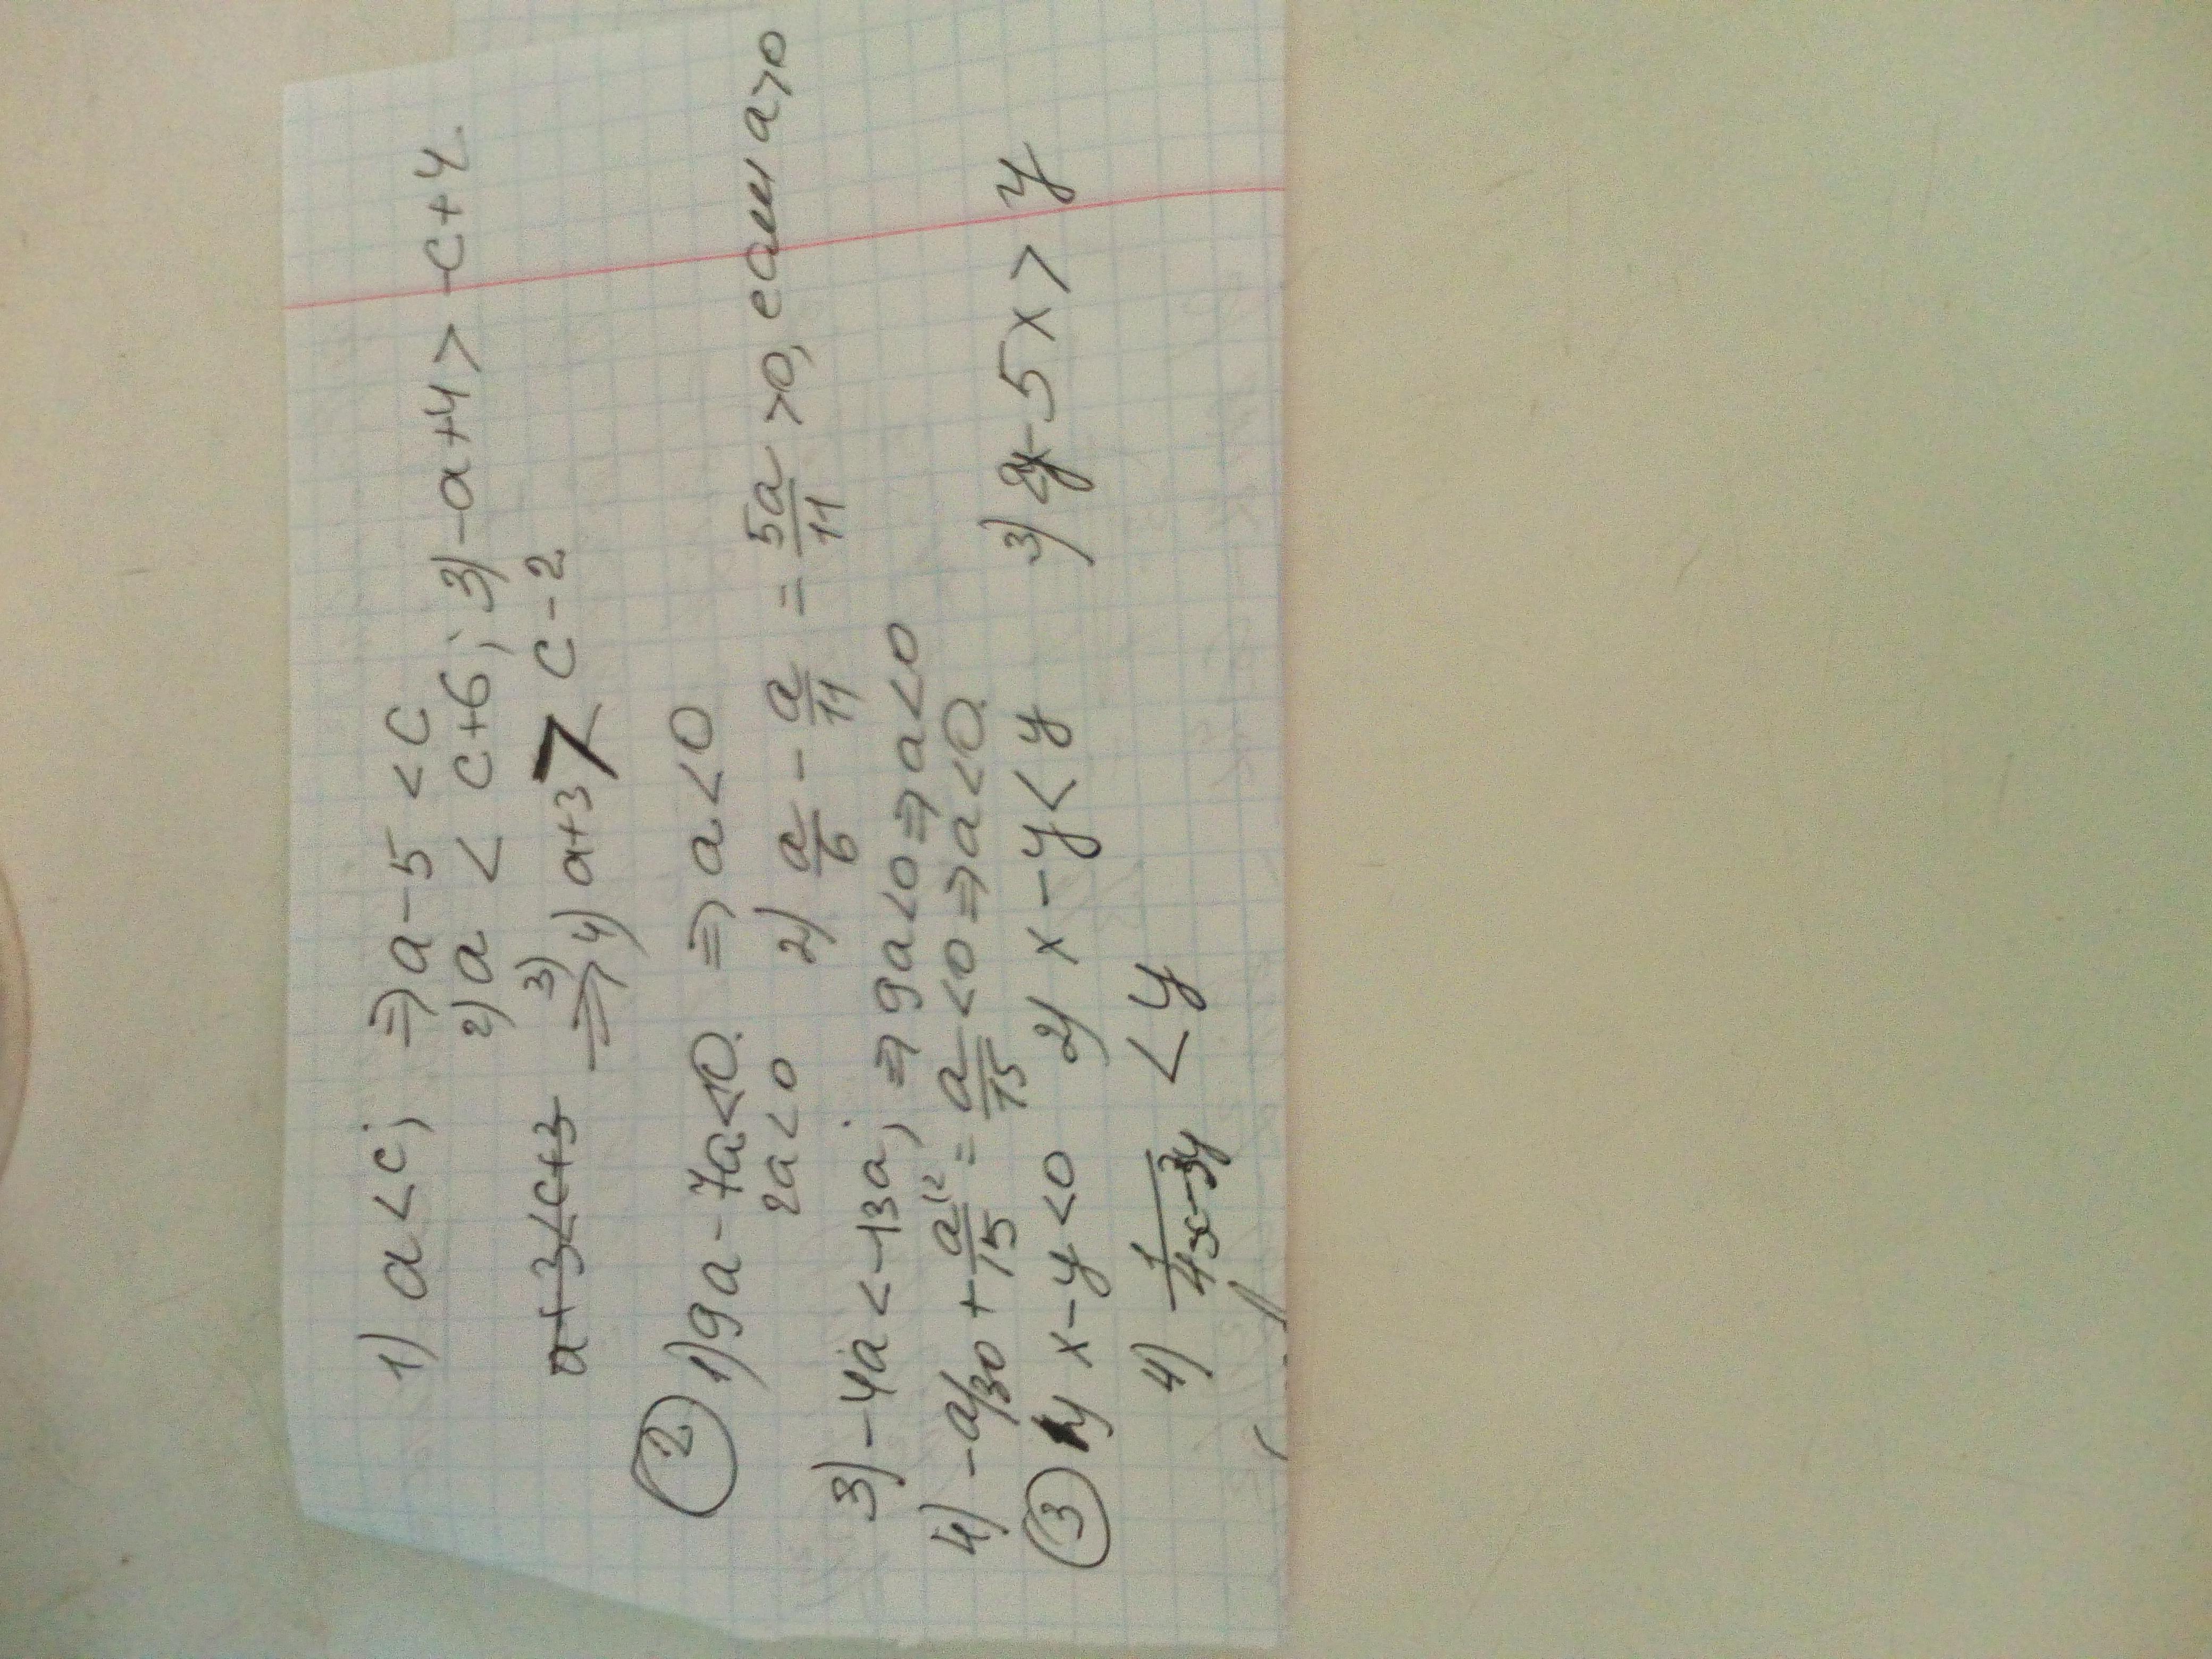 1) a < c; ⇒ a - 5 < c
2) a < c+6; 3) -a+4 > -c+4.
a+3<c+3 ⇒ 3) 4) a+3 > < c-2
2 1) 9a - 7a < 0. ⇒ a < 0
2a < 0 2) a/6 - a/11 = 5a/11 > 0, если a > 0
3) -4a < -13a; ⇒ 9a < 0 ⇒ a < 0
4) -a/30 + a/15 = a/15 < 0 ⇒ a < 0.
3 x - y < 0 2) x - y < y 3) - 5x > y
4) 1/4x-3y < y